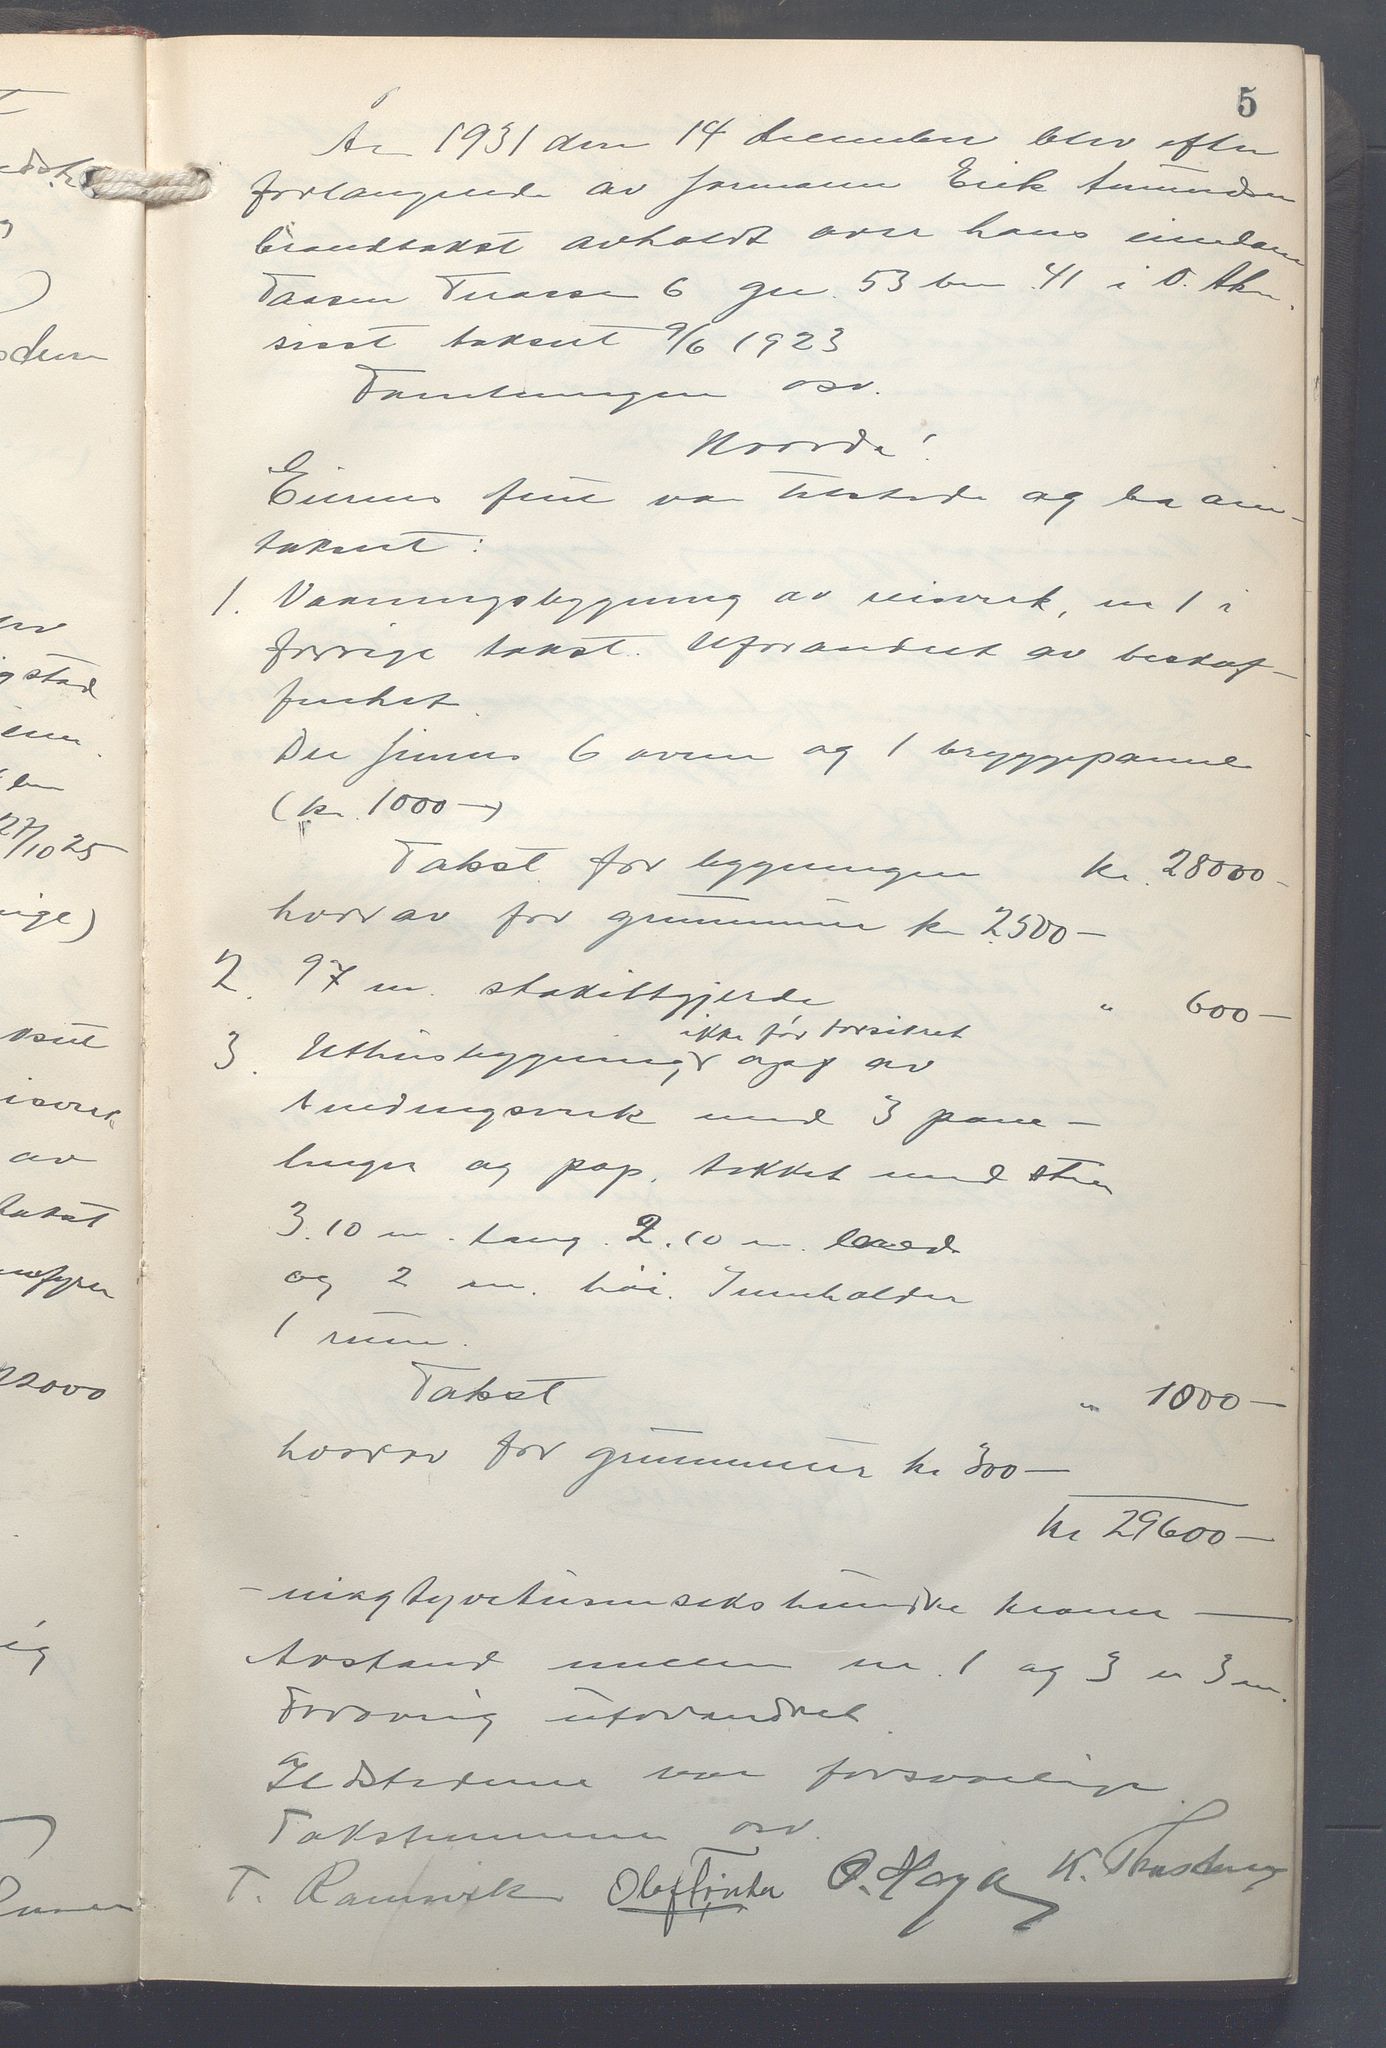 5
År 1931 den 14 desember blev efter
forlangende av formann Erik Amundsen
brandtakst avholdt over hans eiendom
Taasen Terrasse 6 gnr. 53 bnr. 41 i V. Aker.
sisst takseret 9/6 1923
Forretningen osv.
Hvorda!
Eierens frue var tilstede og ba om
taksert:
1. Vaaningsbygning av reisverk, nr 1 i
forrige takst. Uforandret av beskaf-
fenhet.
Der finnes 6 ovner og 1 bryggepanne
(kr. 1000 —)
Takst for bygningen kr. 28000-
hvorav for grunnmur kr 2500—
2. 97 m. stakittgjerde " 600—
ikke før forsikret
3. Uthusbygning, av
bindingsverk med 3 pane-
linger og pap. tekket med sten
3.10 m. lang. 2.10 m. bred
og 2 m. høi. Inneholder
1 rum.
Takst " 1000—
hvorav for grunnmur kr 300—
kr 29600—
- niogtyvetusensekshundre kroner —
Avstand mellem nr. 1 og 3 er 3 m.
Forøvrig uforandret.
Ildstederne var forsvarlige.
Takstmennene osv.
T. Ramsvik Olaf O. Haga K.
ndst.
dsen
stad
27/10 25
rige)
ksert
isverk
av
takst
22000
ig